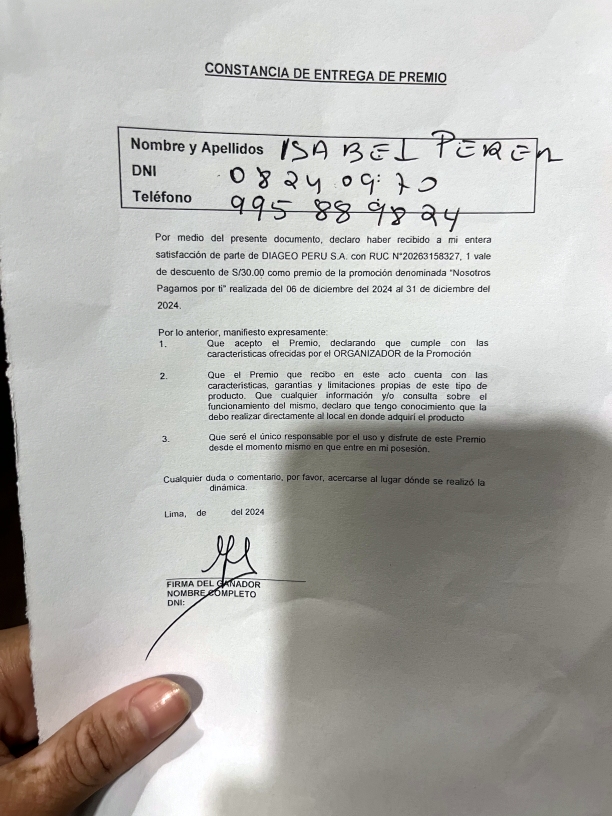 CONSTANCIA DE ENTREGA DE PREMIO
Nombre y Apellidos ISABEL
DNI 08240970
Teléfono 995 889824
Por medio del presente documento, declaro haber recibido a mi entera
satisfacción de parte de DIAGEO PERU S.A. con RUC N°20263158327, 1 vale
de descuento de S/30.00 como premio de la promoción denominada "Nosotros
Pagamos por ti" realizada del 06 de diciembre del 2024 al 31 de diciembre del
2024.
Por lo anterior, manifiesto expresamente:
1. Que acepto el Premio, declarando que cumple con las
características ofrecidas por el ORGANIZADOR de la Promoción
2. Que el Premio que recibo en este acto cuenta con las
características, garantías y limitaciones propias de este tipo de
producto. Que cualquier información y/o consulta sobre el
funcionamiento del mismo, declaro que tengo conocimiento que la
debo realizar directamente al local en donde adquirí el producto
3. Que seré el único responsable por el uso y disfrute de este Premio
desde el momento mismo en que entre en mi posesión.
Cualquier duda o comentario, por favor, acercarse al lugar dónde se realizó la
dinámica.
Lima, de del 2024
FIRMA DEL GANADOR
NOMBRE COMPLETO
DNI: